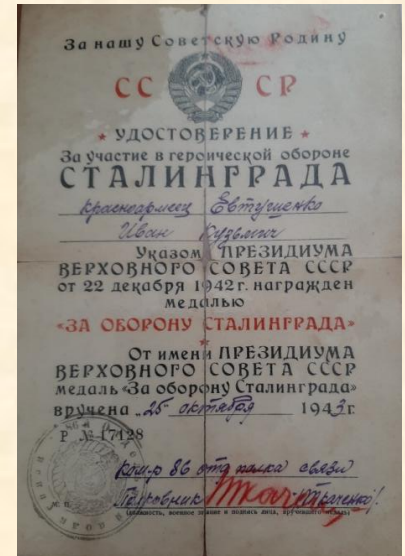 За нашу Советскую Родину
СС СР
УДОСТОВЕРЕНИЕ
За участие в героической обороне
СТАЛИНГРАДА
красноармеец Евтушенко
Иван Кузьмич
Указом ПРЕЗИДИУМА
ВЕРХОВНОГО СОВЕТА СССР
от 22 декабря 1942 г. награжден
медалью
«ЗА ОБОРОНУ СТАЛИНГРАДА»
От имени ПРЕЗИДИУМА
ВЕРХОВНОГО СОВЕТА СССР
медаль «За оборону Сталинграда»
вручена „25" октября 1943 г.
Р № 17128
Ком-р 86 полка связи
Полковник Ткаченко
(должность, военное звание и подпись лица, вручившего медаль)